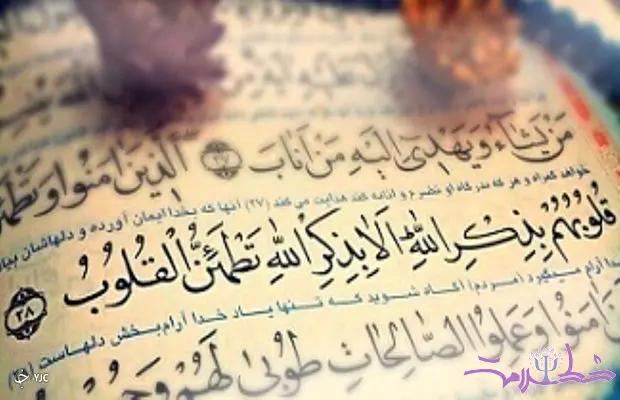 مَن يَشَآءُ وَيَهْدِىٓ إِلَيْهِ مَنْ أَنَابَ ﴿۲۷﴾ الَّذِينَ ءَامَنُوا وَتَطْمَئِنُّ
خواهد گمراه و هر که بدرگاه او تضرع و انابه کند هدایت می کند (۲۷) آنها که بخدا ایمان آورده و دلهاشان بیاد
قُلُوبُهُم بِذِكْرِ اللَّهِ أَلَا بِذِكْرِ اللَّهِ تَطْمَئِنُّ الْقُلُوبُ ﴿۲۸﴾
خدا آرام میگیرد (مردم) آگاه شوید که تنها یاد خدا آرام‌بخش دلهاست
ءَامَنُوا وَعَمِلُوا الصَّالِحَاتِ طُوبَىٰ لَهُمْ
خط سلامت
YJC